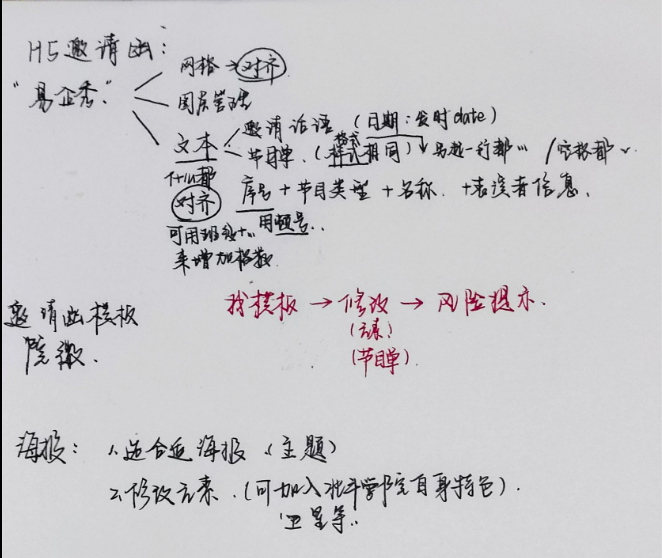 H5邀请函：
"易企秀"
网格→对齐
图层管理
文本
邀请话语（日期：发时date）
节目单．（样式相同）
格式
对齐
序号＋节目类型＋名称．＋表演者信息．
用顿号．．
来增加格数
邀请函模板
找模板→修改→风险提示．
（元素）
（节目单）．
海报：1.选合适海报（主题）
2.修改元素．（可加入北斗学院自身特色）．
卫星等．．